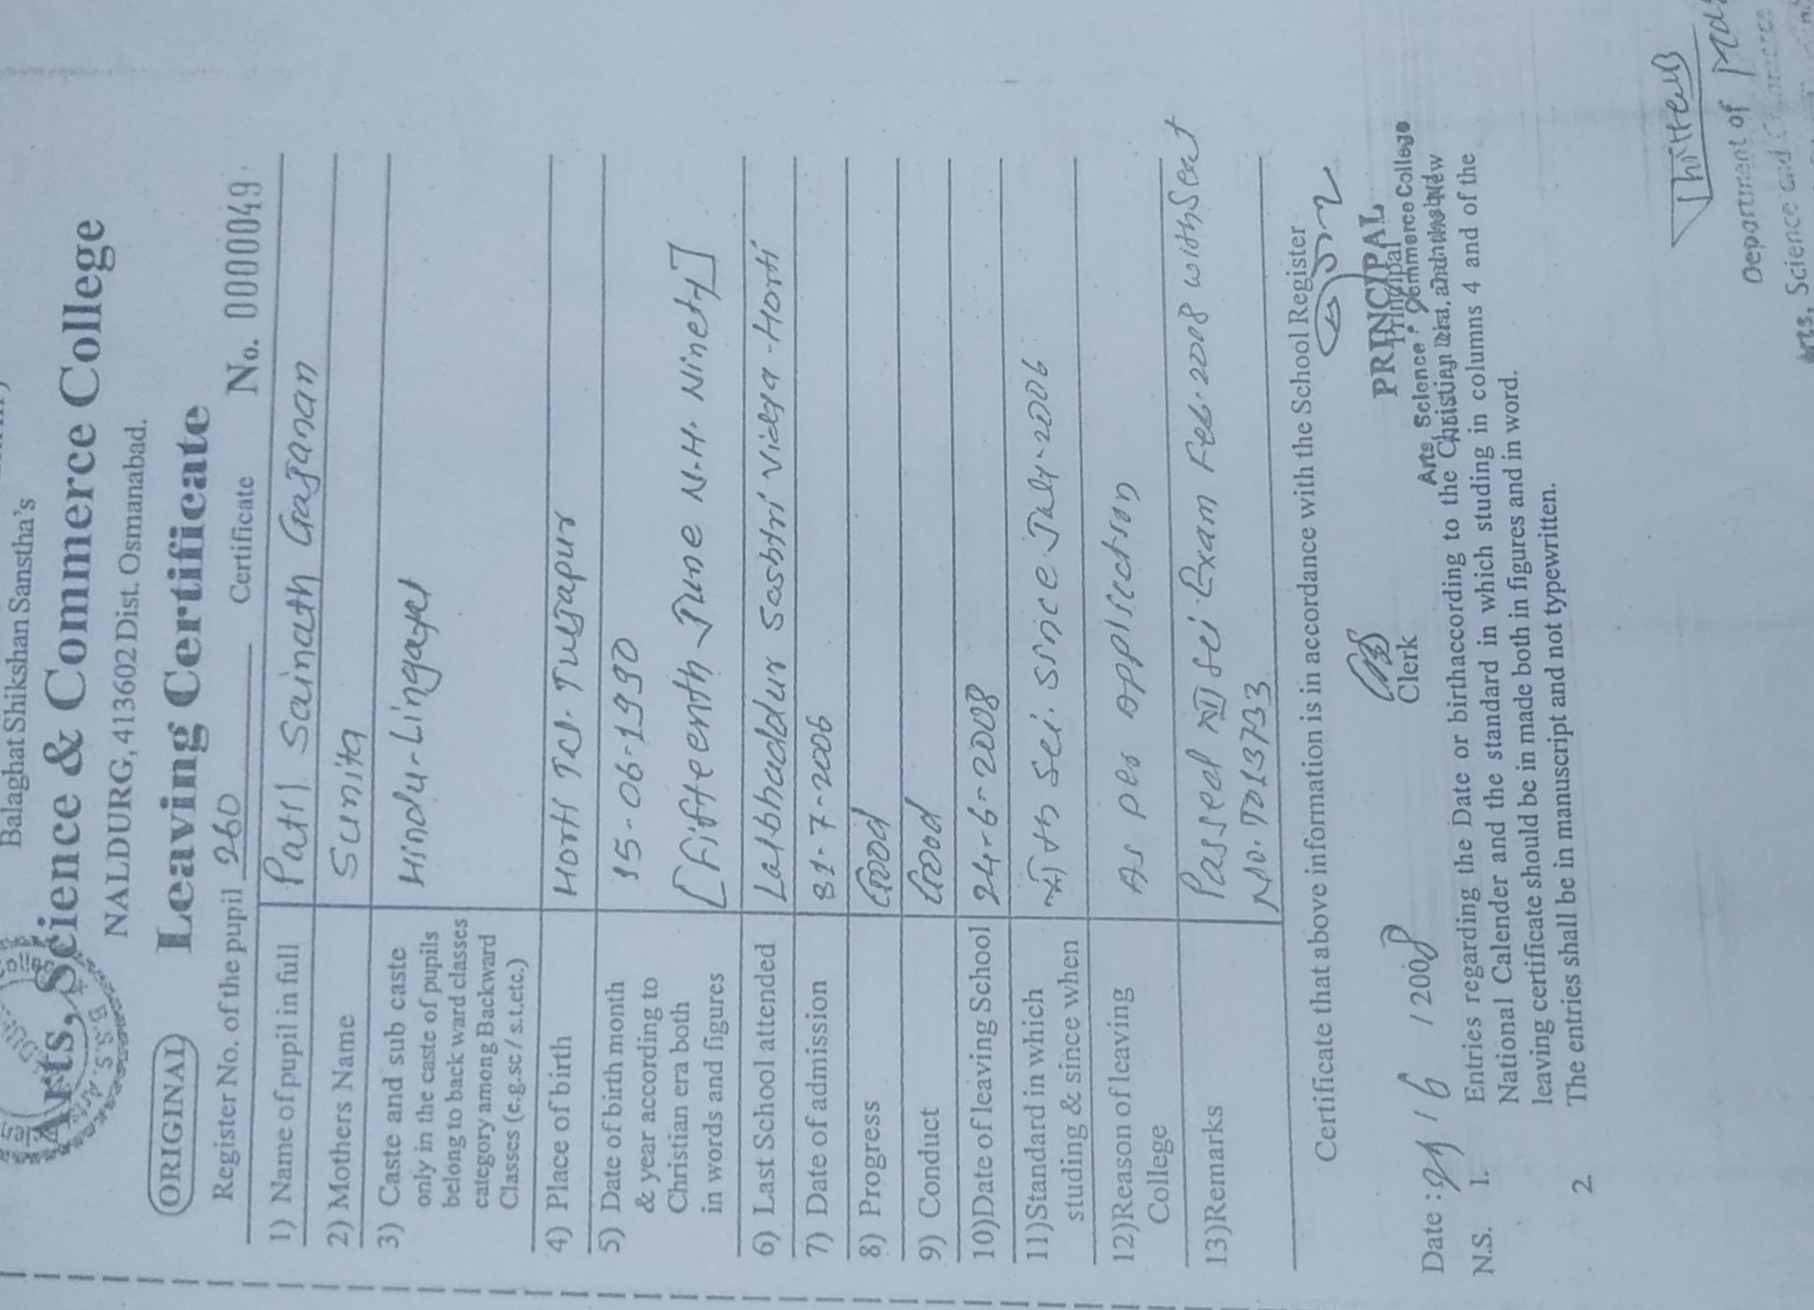 Balaghat Shikshan Sanstha's
Arts, Science & Commerce College
NALDURG, 413602 Dist. Osmanabad.
ORIGINAL
Leaving Certificate
Register No. of the pupil 260 Certificate No. 0000049
1) Name of pupil in full Patil Sainath Gajanan
2) Mothers Name Sunita
3) Caste and sub caste Hindu-Lingayat
only in the caste of pupils
belong to back ward classes
category among Backward
Classes (e.g.sc / s.t.etc.)
4) Place of birth Horti Tal. Tuljapur
5) Date of birth month 15-06-1990
& year according to
Christian era both
in words and figures [Fifteenth June N.H. Ninety]
6) Last School attended Lalbhaddur Sashtri Vidya-Horti
7) Date of admission 31-7-2006
8) Progress Good
9) Conduct Good
10)Date of leaving School 24-6-2008
11)Standard in which
studing & since when July-2006
12)Reason of leaving As per application
College
13)Remarks Passed XII Sci. Exam Feb-2008 with Seat
No. T013733
Certificate that above information is in accordance with the School Register
Clerk
PRINCIPAL
Principal
Arts Science & Commerce College
Date : 24 / 6 / 2008
N.S. 1. Entries regarding the Date or birthaccording to the Christian
National Calender and the standard in which studing in columns 4 and of the
leaving certificate should be in made both in figures and in word.
2 The entries shall be in manuscript and not typewritten.
Department of
Arts, Science and Commerce